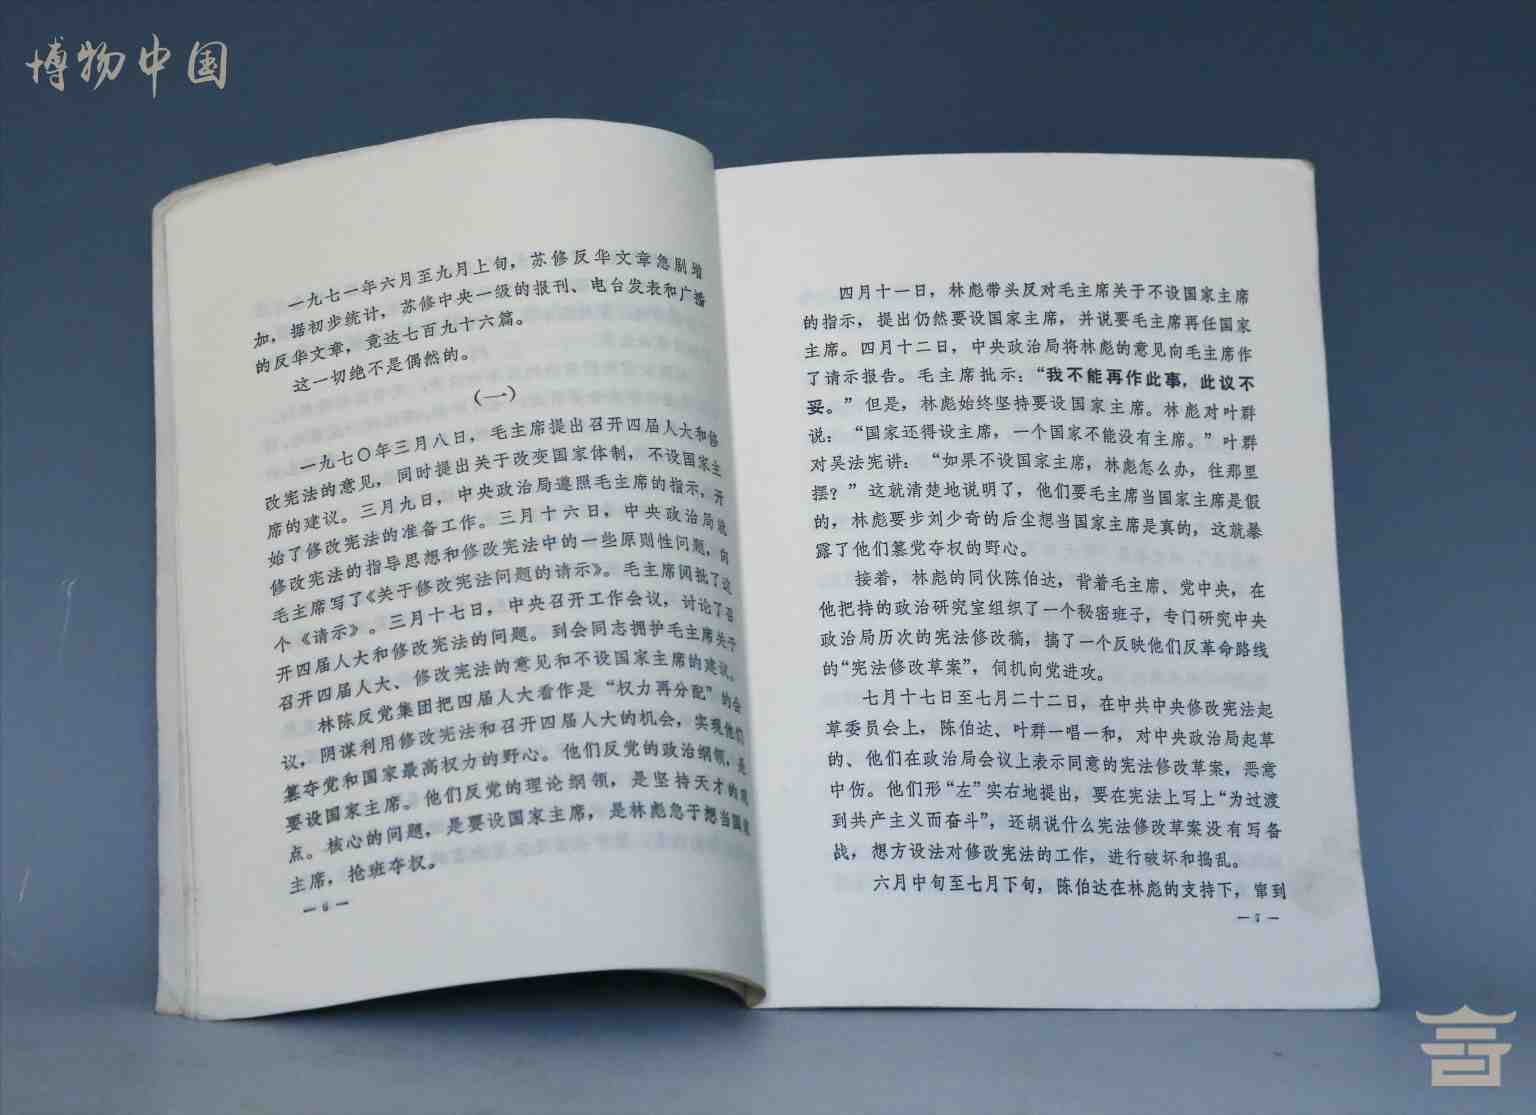 博物中国
一九七一年六月至九月上旬，苏修反华文章急剧增
加，据初步统计，苏修中央一级的报刊、电台发表和广播
的反华文章，竟达七百九十六篇。
这一切绝不是偶然的。
（一）
一九七〇年三月八日，毛主席提出召开四届人大和修
改宪法的意见，同时提出关于改变国家体制，不设国家主
席的建议。三月九日，中央政治局遵照毛主席的指示，开
始了修改宪法的准备工作。三月十六日，中央政治局就
修改宪法的指导思想和修改宪法中的一些原则性问题，向
毛主席写了《关于修改宪法问题的请示》。毛主席阅批了这
个《请示》。三月十七日，中央召开工作会议，讨论了召
开四届人大和修改宪法的问题。到会同志拥护毛主席关于
召开四届人大、修改宪法的意见和不设国家主席的建议。
林陈反党集团把四届人大看作是“权力再分配”的会
议，阴谋利用修改宪法和召开四届人大的机会，实现他们
篡夺党和国家最高权力的野心。他们反党的政治纲领，是
要设国家主席。他们反党的理论纲领，是坚持天才的观
点。核心的问题，是要设国家主席，是林彪急于想当国家
主席，抢班夺权。
— 6 —
四月十一日，林彪带头反对毛主席关于不设国家主席
的指示，提出仍然要设国家主席，并说要毛主席再任国家
主席。四月十二日，中央政治局将林彪的意见向毛主席作
了请示报告。毛主席批示：“我不能再作此事，此议不
妥。”但是，林彪始终坚持要设国家主席。林彪对叶群
说：“国家还得设主席，一个国家不能没有主席。”叶群
对吴法宪讲：“如果不设国家主席，林彪怎么办，往那里
摆？”这就清楚地说明了，他们要毛主席当国家主席是假
的，林彪要步刘少奇的后尘想当国家主席是真的，这就暴
露了他们篡党夺权的野心。
接着，林彪的同伙陈伯达，背着毛主席、党中央，在
他把持的政治研究室组织了一个秘密班子，专门研究中央
政治局历次的宪法修改稿，搞了一个反映他们反革命路线
的“宪法修改草案”，伺机向党进攻。
七月十七日至七月二十二日，在中共中央修改宪法起
草委员会上，陈伯达、叶群一唱一和，对中央政治局起草
的、他们在政治局会议上表示同意的宪法修改草案，恶意
中伤。他们形“左”实右地提出，要在宪法上写上“为过渡
到共产主义而奋斗”，还胡说什么宪法修改草案没有写备
战，想方设法对修改宪法的工作，进行破坏和捣乱。
六月中旬至七月下旬，陈伯达在林彪的支持下，窜到
— 7 —